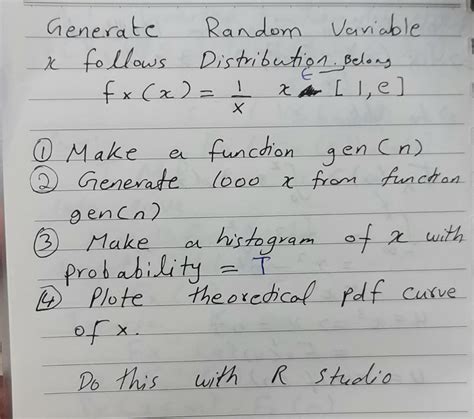 Generate Random Variable
x follows Distribution. Belong
fx(x) = 1/x x ∈ [1, e]
① Make a function gen(n)
② Generate 1000 x from function
gen(n)
③ Make a histogram of x with
probability = T
④ Plote theoredical pdf curve
of x.
Do this with R studio